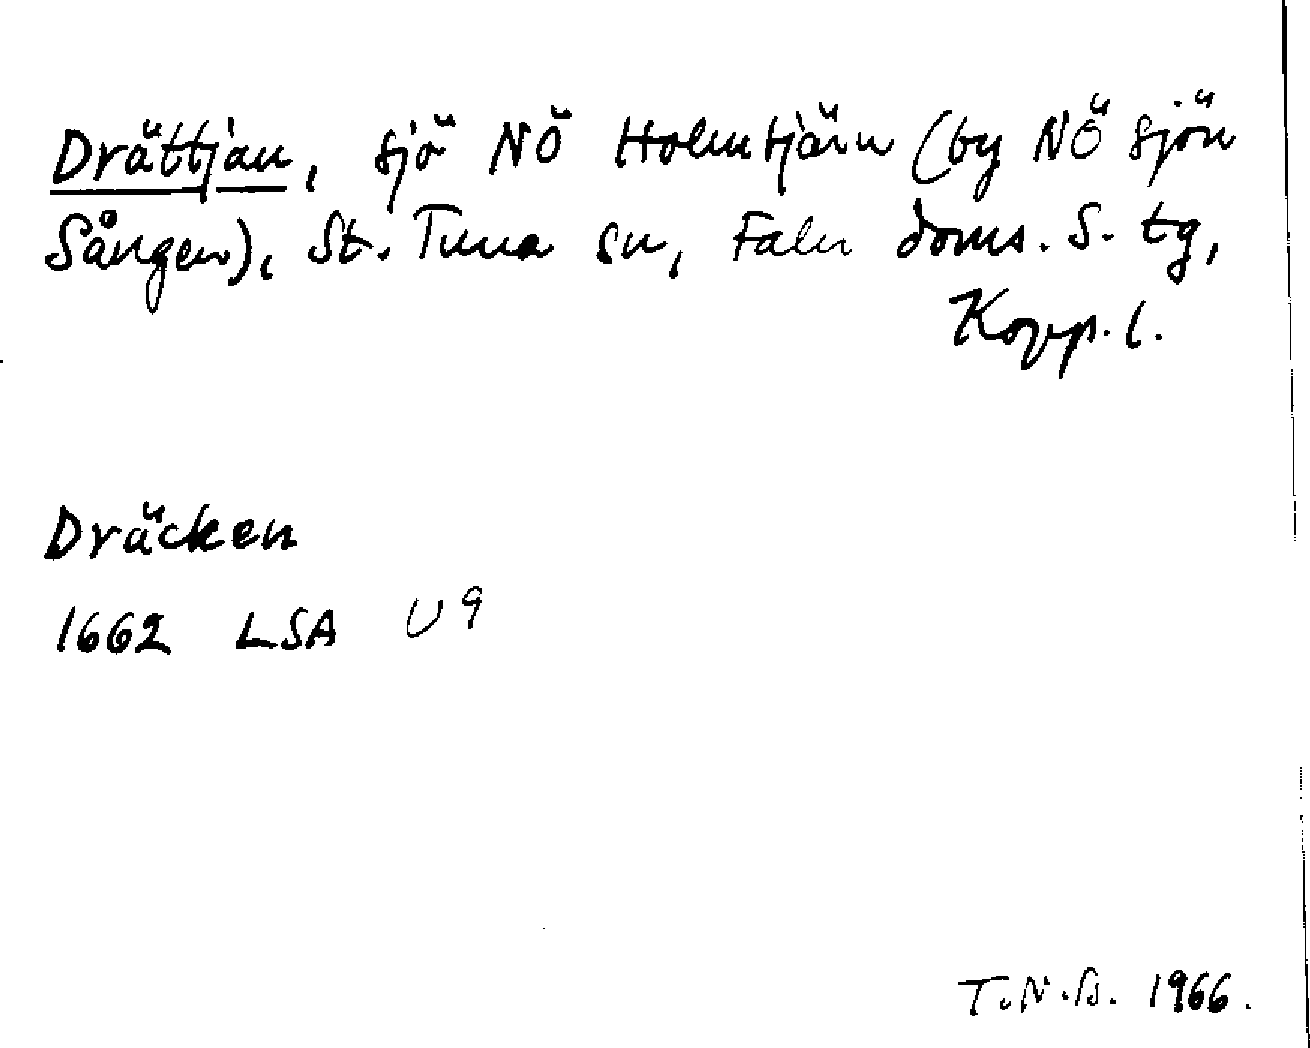 Drättjan, sjö NÖ Holmtjärn (by NÖ sjön
Sången), St. Tuna sn, Falu doms. S. tg,
Kopp. l.
Dräcken
1662 LSA U 9
T.N.B. 1966.